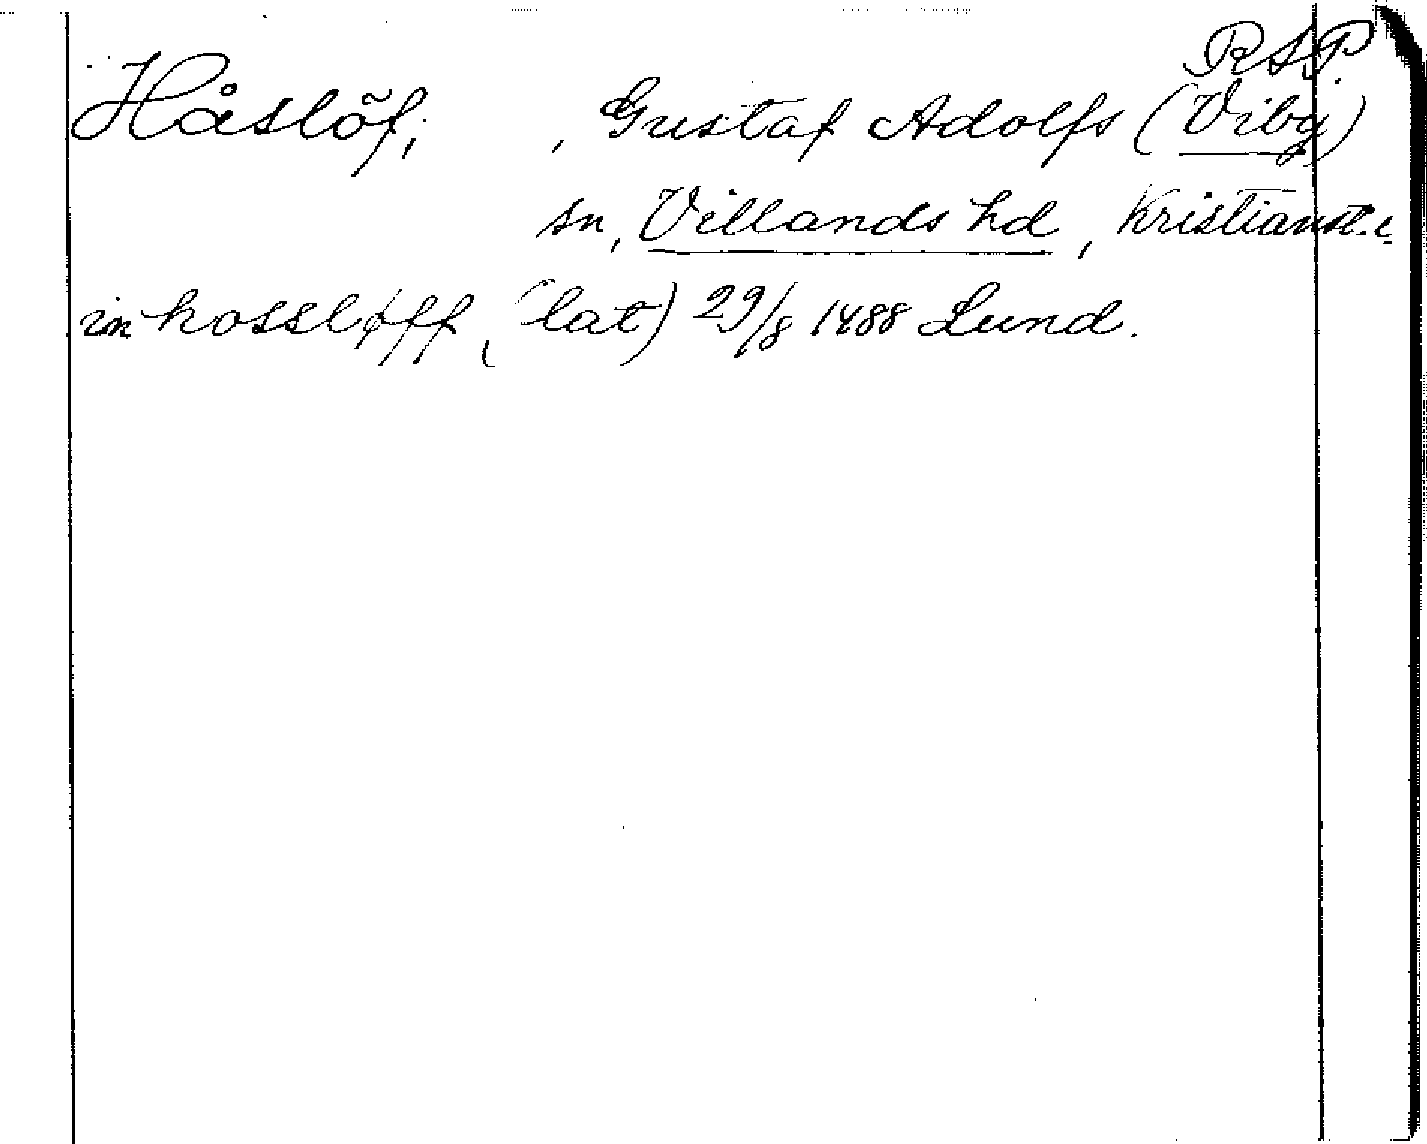 RAP
Håslöf, , Gustaf Adolfs (Viby)
sn, Villands hd, Kristianst. l.
in hossløff, (lat) 29/8 1488 Lund.